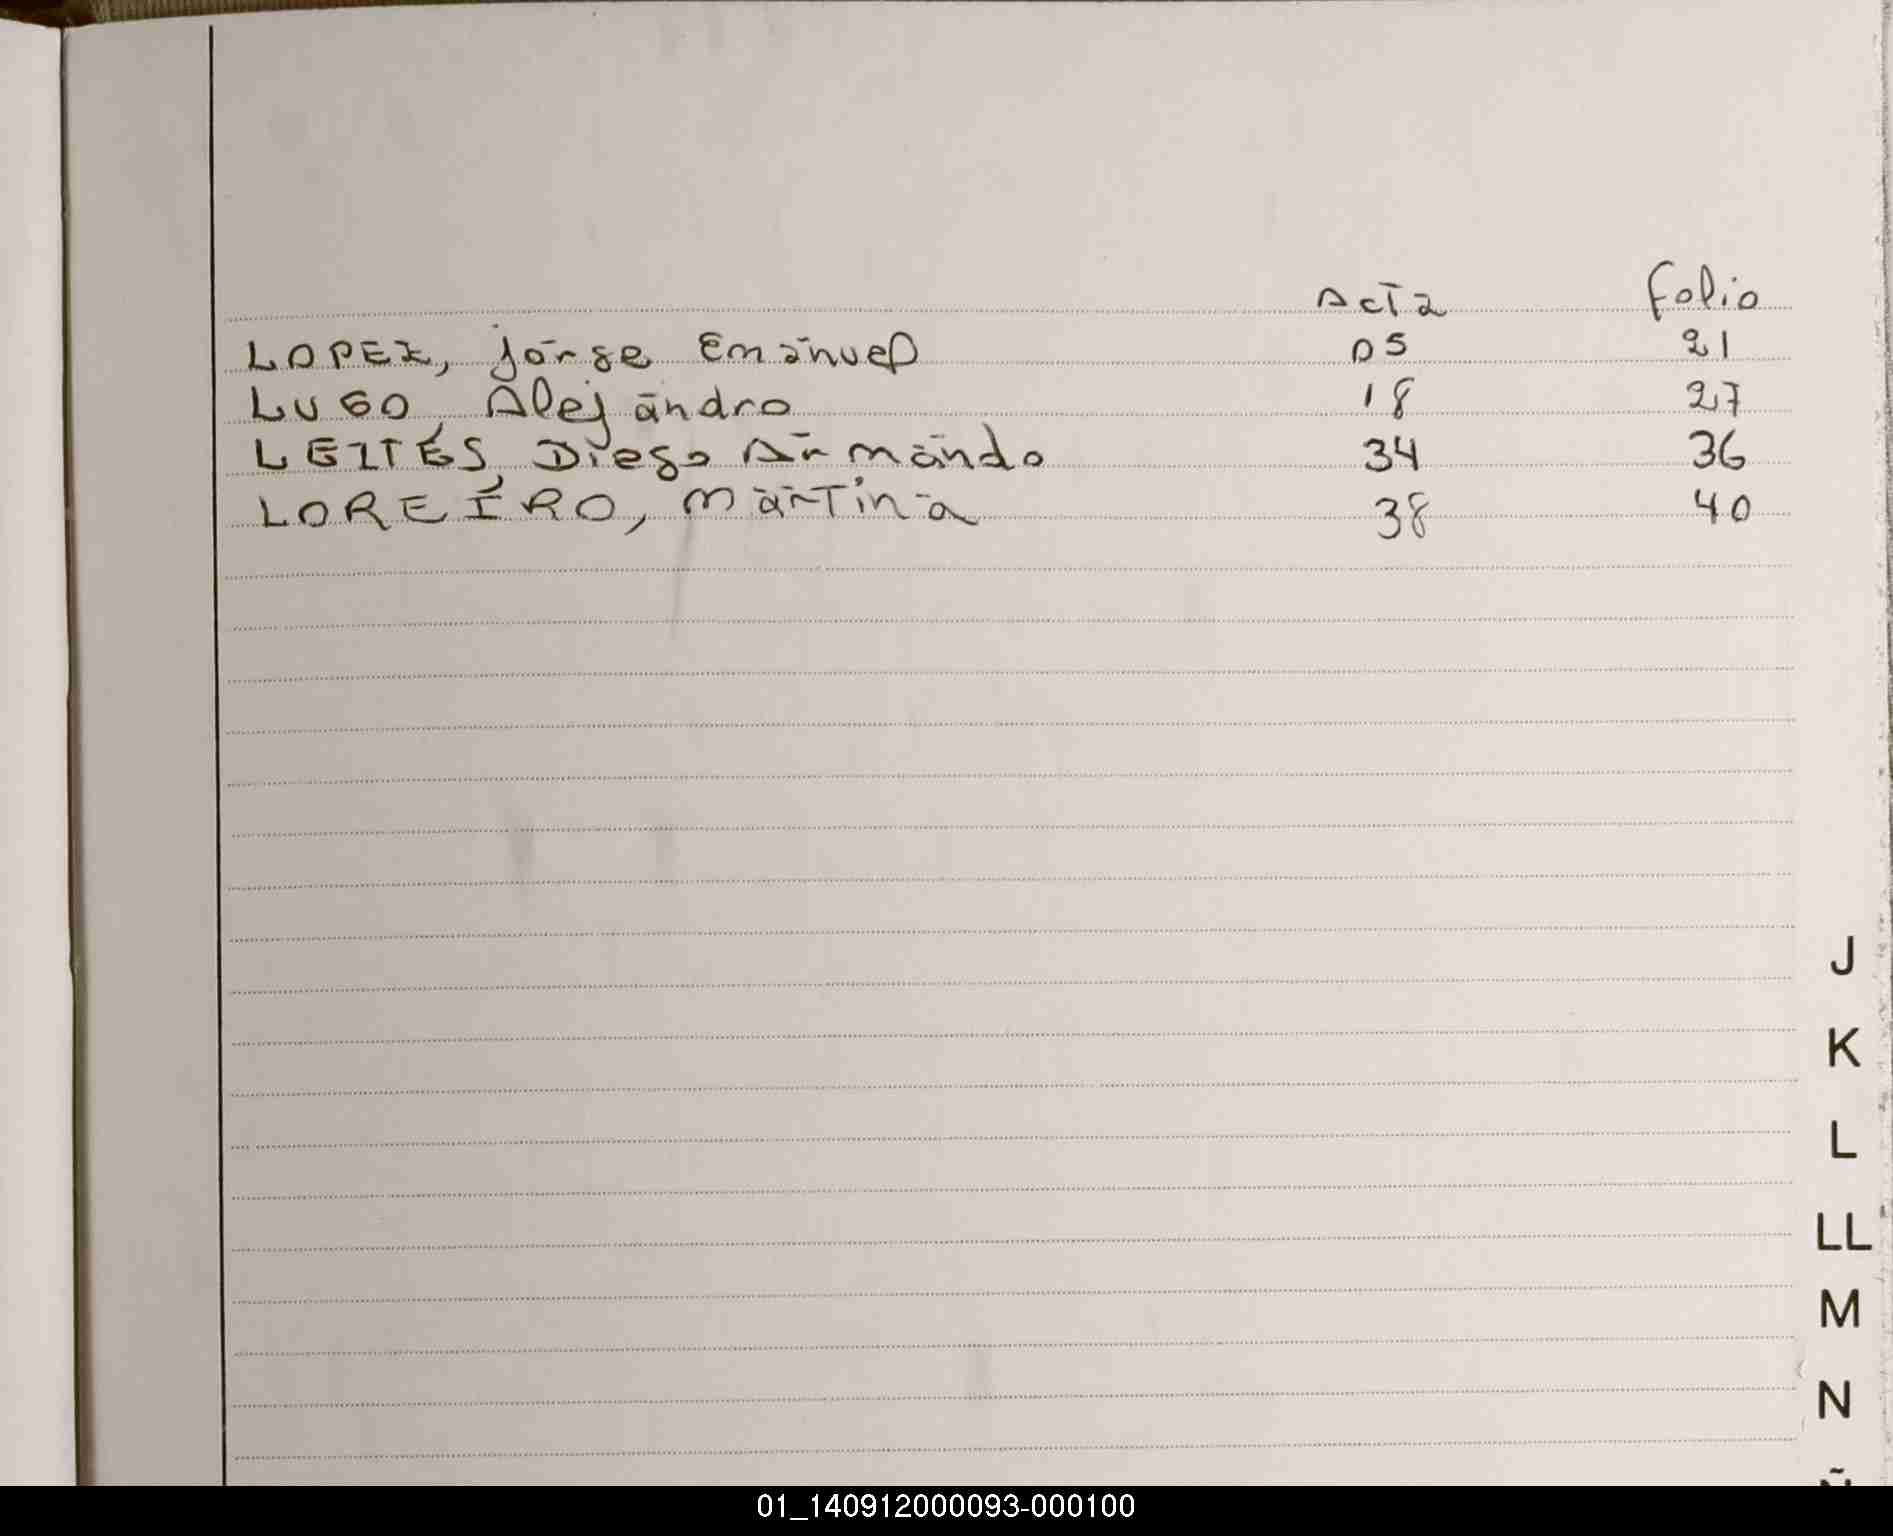 Acta Folio
LOPEZ, Jorge Emanuel 05 21
LUGO, Alejandro 18 27
LEITES, Diego Armando 34 36
LOREIRO, Martina 38 40
J
K
L
LL
M
N
Ñ
01_140912000093-000100